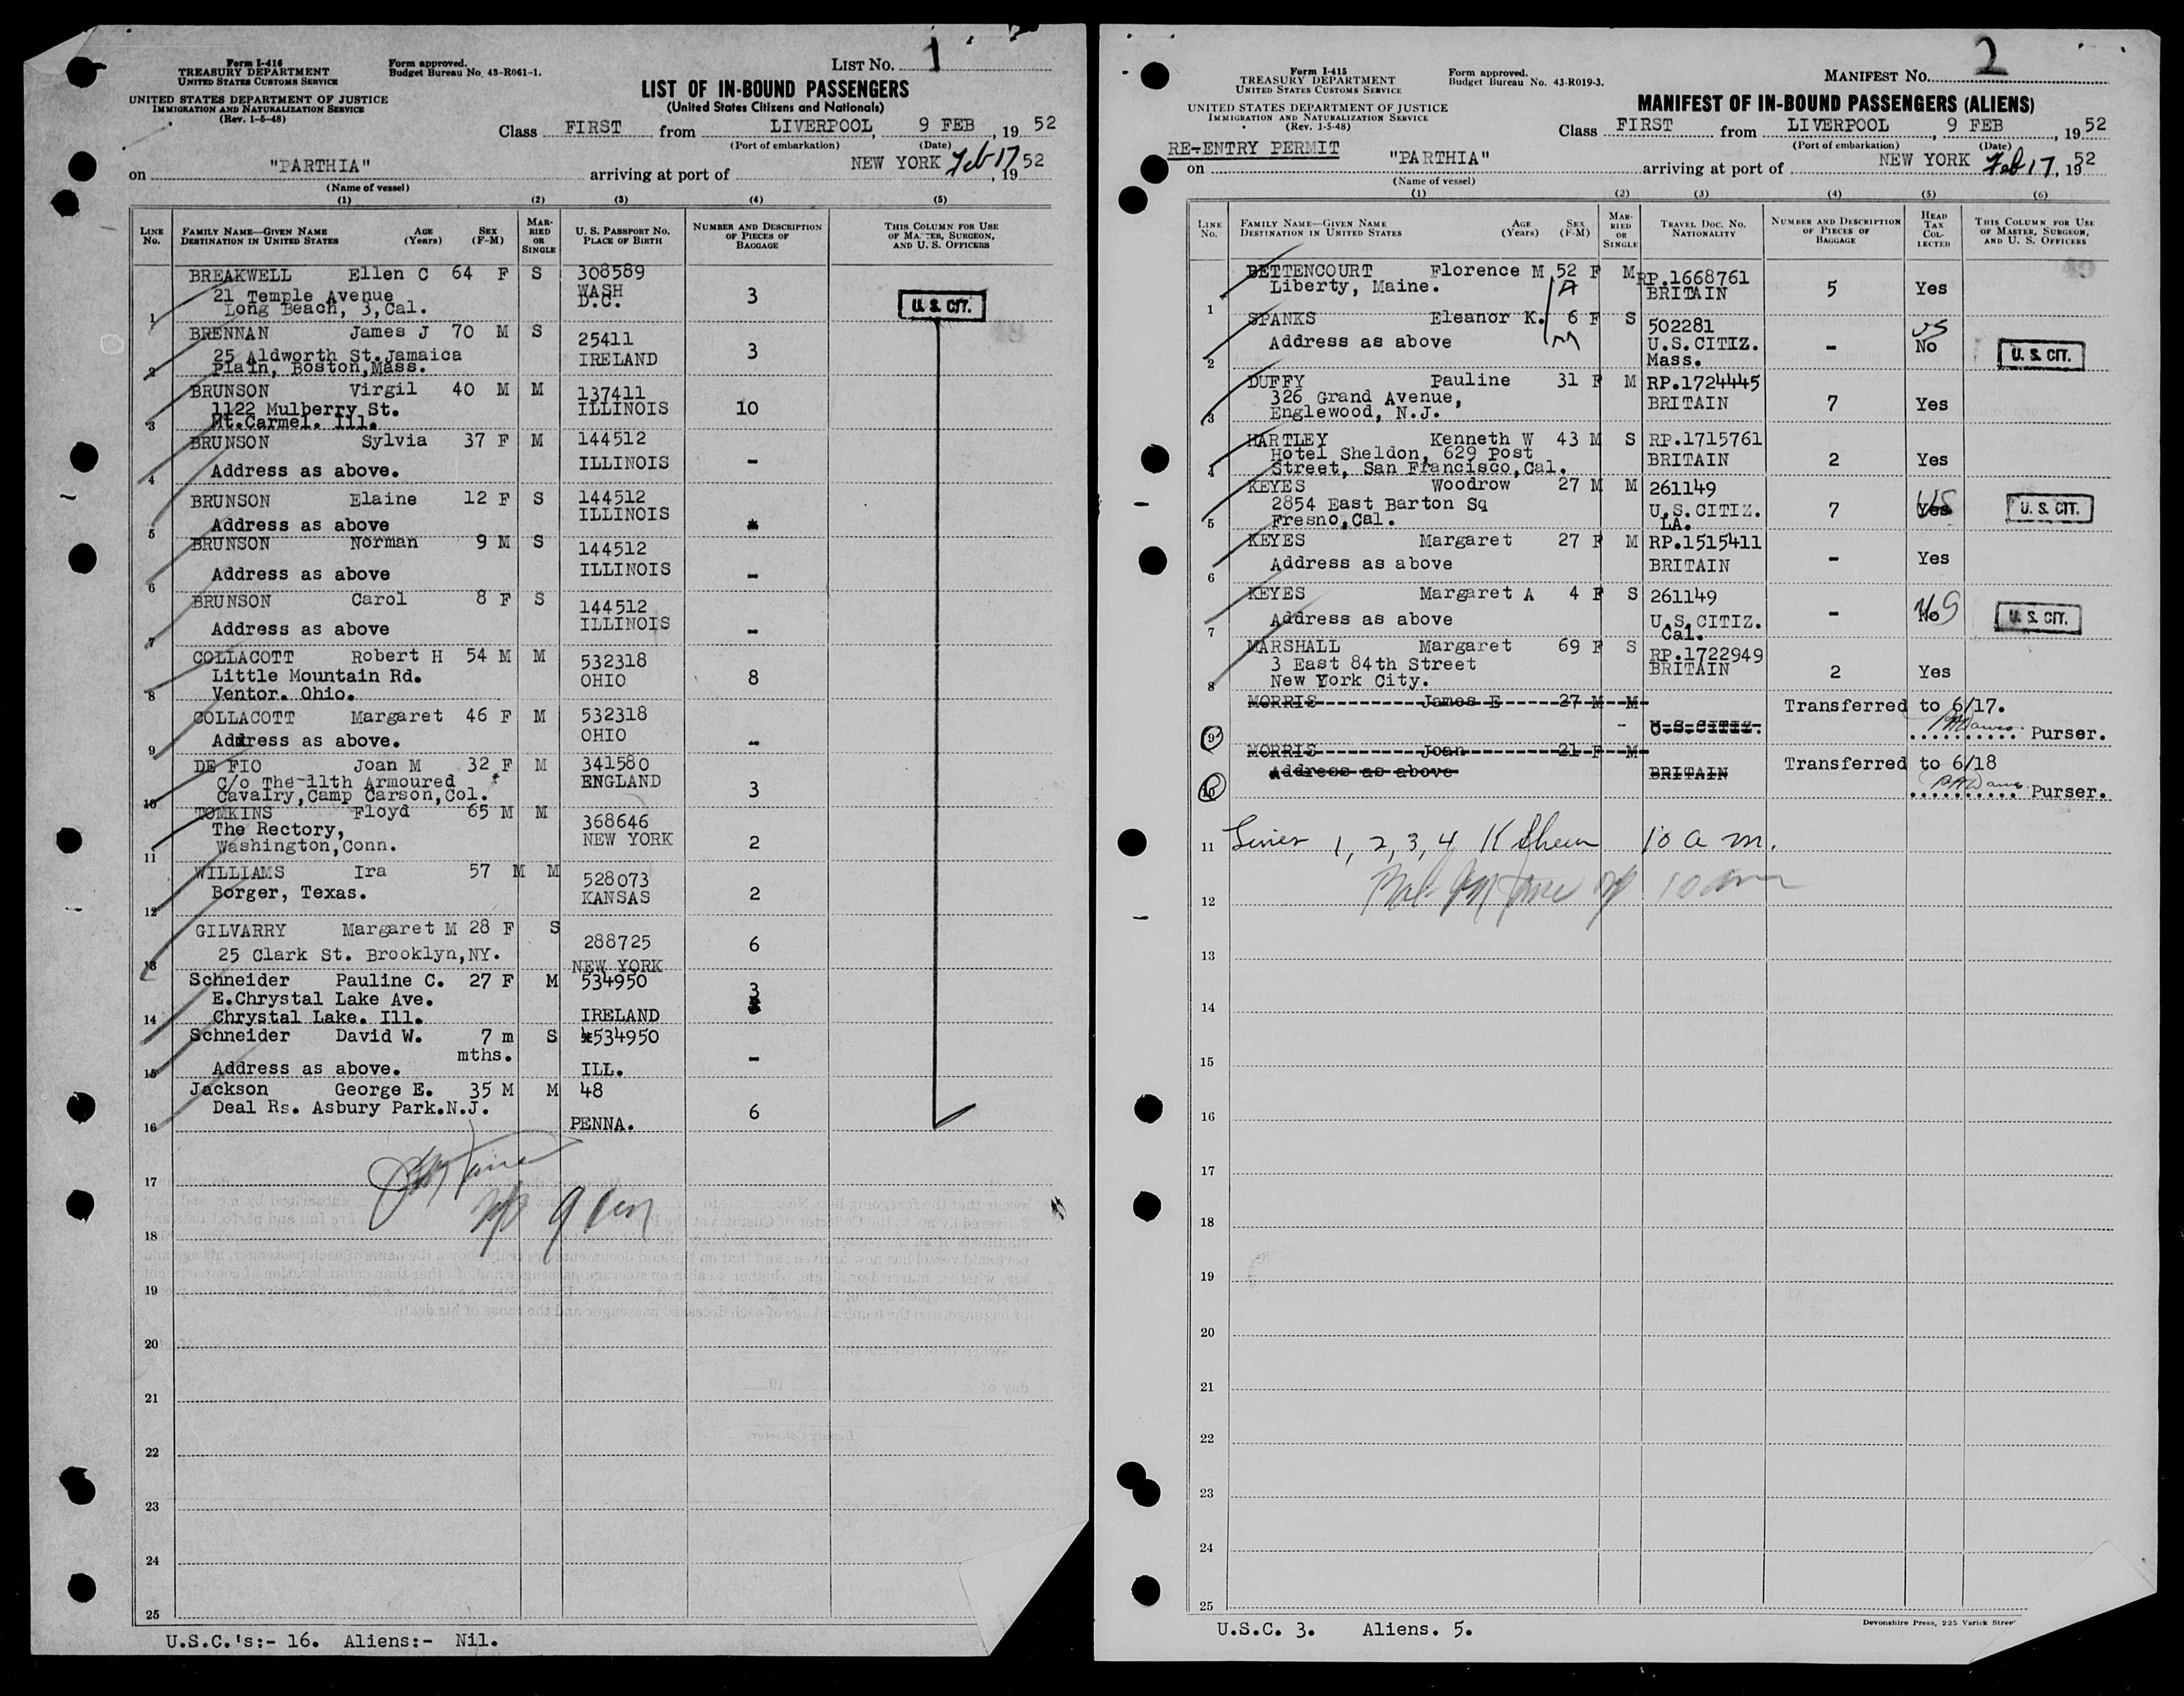 Form I-416
TREASURY DEPARTMENT
UNITED STATES CUSTOMS SERVICE
Form approved.
Budget Bureau No. 43-R061-1.
LIST NO. 1
UNITED STATES DEPARTMENT OF JUSTICE
IMMIGRATION AND NATURALIZATION SERVICE
(Rev. 1-5-48)
LIST OF IN-BOUND PASSENGERS
(United States Citizens and Nationals)
Class FIRST from LIVERPOOL, 9 FEB, 19 52
(Port of embarkation) (Date)
on "PARTHIA" arriving at port of NEW YORK Feb 17, 19 52
(Name of vessel)
(1) (2) (3) (4) (5)
LINE No. FAMILY NAME—GIVEN NAME DESTINATION IN UNITED STATES AGE (Years) SEX (F-M) MARRIED OR SINGLE U. S. PASSPORT NO. PLACE OF BIRTH NUMBER AND DESCRIPTION OF PIECES OF BAGGAGE THIS COLUMN FOR USE OF MASTER, SURGEON, AND U. S. OFFICERS
BREAKWELL Ellen C 64 F S 308589
21 Temple Avenue WASH 3 U. S. CIT.
1 Long Beach, 3, Cal. D.C.
BRENNAN James J 70 M S 25411
25 Aldworth St. Jamaica IRELAND 3
2 Plain, Boston, Mass.
BRUNSON Virgil 40 M M 137411
1122 Mulberry St. ILLINOIS 10
3 Mt. Carmel. Ill.
BRUNSON Sylvia 37 F M 144512
4 Address as above. ILLINOIS -
BRUNSON Elaine 12 F S 144512
5 Address as above ILLINOIS
BRUNSON Norman 9 M S 144512
6 Address as above ILLINOIS -
BRUNSON Carol 8 F S 144512
7 Address as above ILLINOIS -
COLLACOTT Robert H 54 M M 532318
Little Mountain Rd. OHIO 8
8 Ventor. Ohio.
COLLACOTT Margaret 46 F M 532318
9 Address as above. OHIO -
DE FIO Joan M 32 F M 341580
C/o The 11th Armoured ENGLAND 3
10 Cavalry, Camp Carson, Col.
TOMKINS Floyd 65 M M 368646
The Rectory, NEW YORK 2
11 Washington, Conn.
WILLIAMS Ira 57 M M 528073
12 Borger, Texas. KANSAS 2
GILVARRY Margaret M 28 F S 288725 6
13 25 Clark St. Brooklyn, NY. NEW YORK
Schneider Pauline C. 27 F M 534950 3
E.Chrystal Lake Ave.
14 Chrystal Lake. Ill. IRELAND
Schneider David W. 7 m S 534950
mths. -
15 Address as above. ILL.
Jackson George E. 35 M M 48
Deal Rs. Asbury Park.N.J. 6
16 PENNA.
17
18
19
20
21
22
23
24
25
U.S.C.'s:- 16. Aliens:- Nil.
Form I-415
TREASURY DEPARTMENT
UNITED STATES CUSTOMS SERVICE
Form approved.
Budget Bureau No. 43-R019-3.
MANIFEST NO. 2
UNITED STATES DEPARTMENT OF JUSTICE
IMMIGRATION AND NATURALIZATION SERVICE
(Rev. 1-5-48)
MANIFEST OF IN-BOUND PASSENGERS (ALIENS)
Class FIRST from LIVERPOOL, 9 FEB, 19 52
(Port of embarkation) (Date)
RE-ENTRY PERMIT
on "PARTHIA" arriving at port of NEW YORK Feb 17, 19 52
(Name of vessel)
(1) (2) (3) (4) (5) (6)
LINE No. FAMILY NAME—GIVEN NAME DESTINATION IN UNITED STATES AGE (Years) SEX (F-M) MARRIED OR SINGLE TRAVEL DOC. NO. NATIONALITY NUMBER AND DESCRIPTION OF PIECES OF BAGGAGE HEAD TAX COLLECTED THIS COLUMN FOR USE OF MASTER, SURGEON, AND U. S. OFFICERS
BETTENCOURT Florence M 52 F M RP.1668761
1 Liberty, Maine. BRITAIN 5 Yes
SPANKS Eleanor K. 6 F S 502281 US
Address as above U.S.CITIZ. - No U. S. CIT.
2 Mass.
DUFFY Pauline 31 F M RP.1724445
326 Grand Avenue, BRITAIN 7 Yes
3 Englewood, N.J.
HARTLEY Kenneth W 43 M S RP.1715761
Hotel Sheldon, 629 Post BRITAIN 2 Yes
4 Street, San Francisco, Cal.
KEYES Woodrow 27 M M 261149
2854 East Barton Sq U.S.CITIZ. 7 Yes US U. S. CIT.
5 Fresno, Cal. LA.
KEYES Margaret 27 F M RP.1515411
6 Address as above BRITAIN - Yes
KEYES Margaret A 4 F S 261149
Address as above U.S.CITIZ. - No U. S. CIT.
7 Cal.
MARSHALL Margaret 69 F S RP.1722949
3 East 84th Street BRITAIN 2 Yes
8 New York City.
MORRIS James E 27 M M Transferred to 6/17.
9 U.S.CITIZ. Purser.
MORRIS Joan 21 F M Transferred to 6/18
10 Address as above BRITAIN Purser.
11 Lines 1, 2, 3, 4 10 a m.
12 10 am
13
14
15
16
17
18
19
20
21
22
23
24
25
U.S.C. 3. Aliens. 5.
Devonshire Press, 225 Varick Street